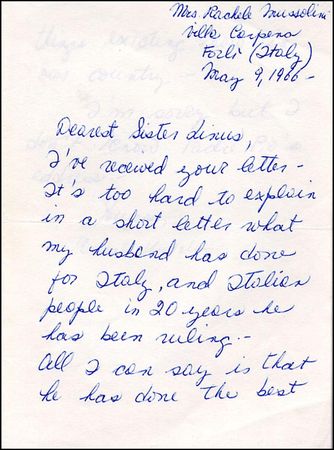 Mrs Rachele Mussolini
Villa Carpena
Forlì (Italy)
May 9, 1966 -
Dearest Sister Linus,
I've receved your letter -
It's too hard to explain
in a short letter what
my husband has done
for Italy, and Italian
people in 20 years he
has been ruling. -
All I can say is that
he has done the best